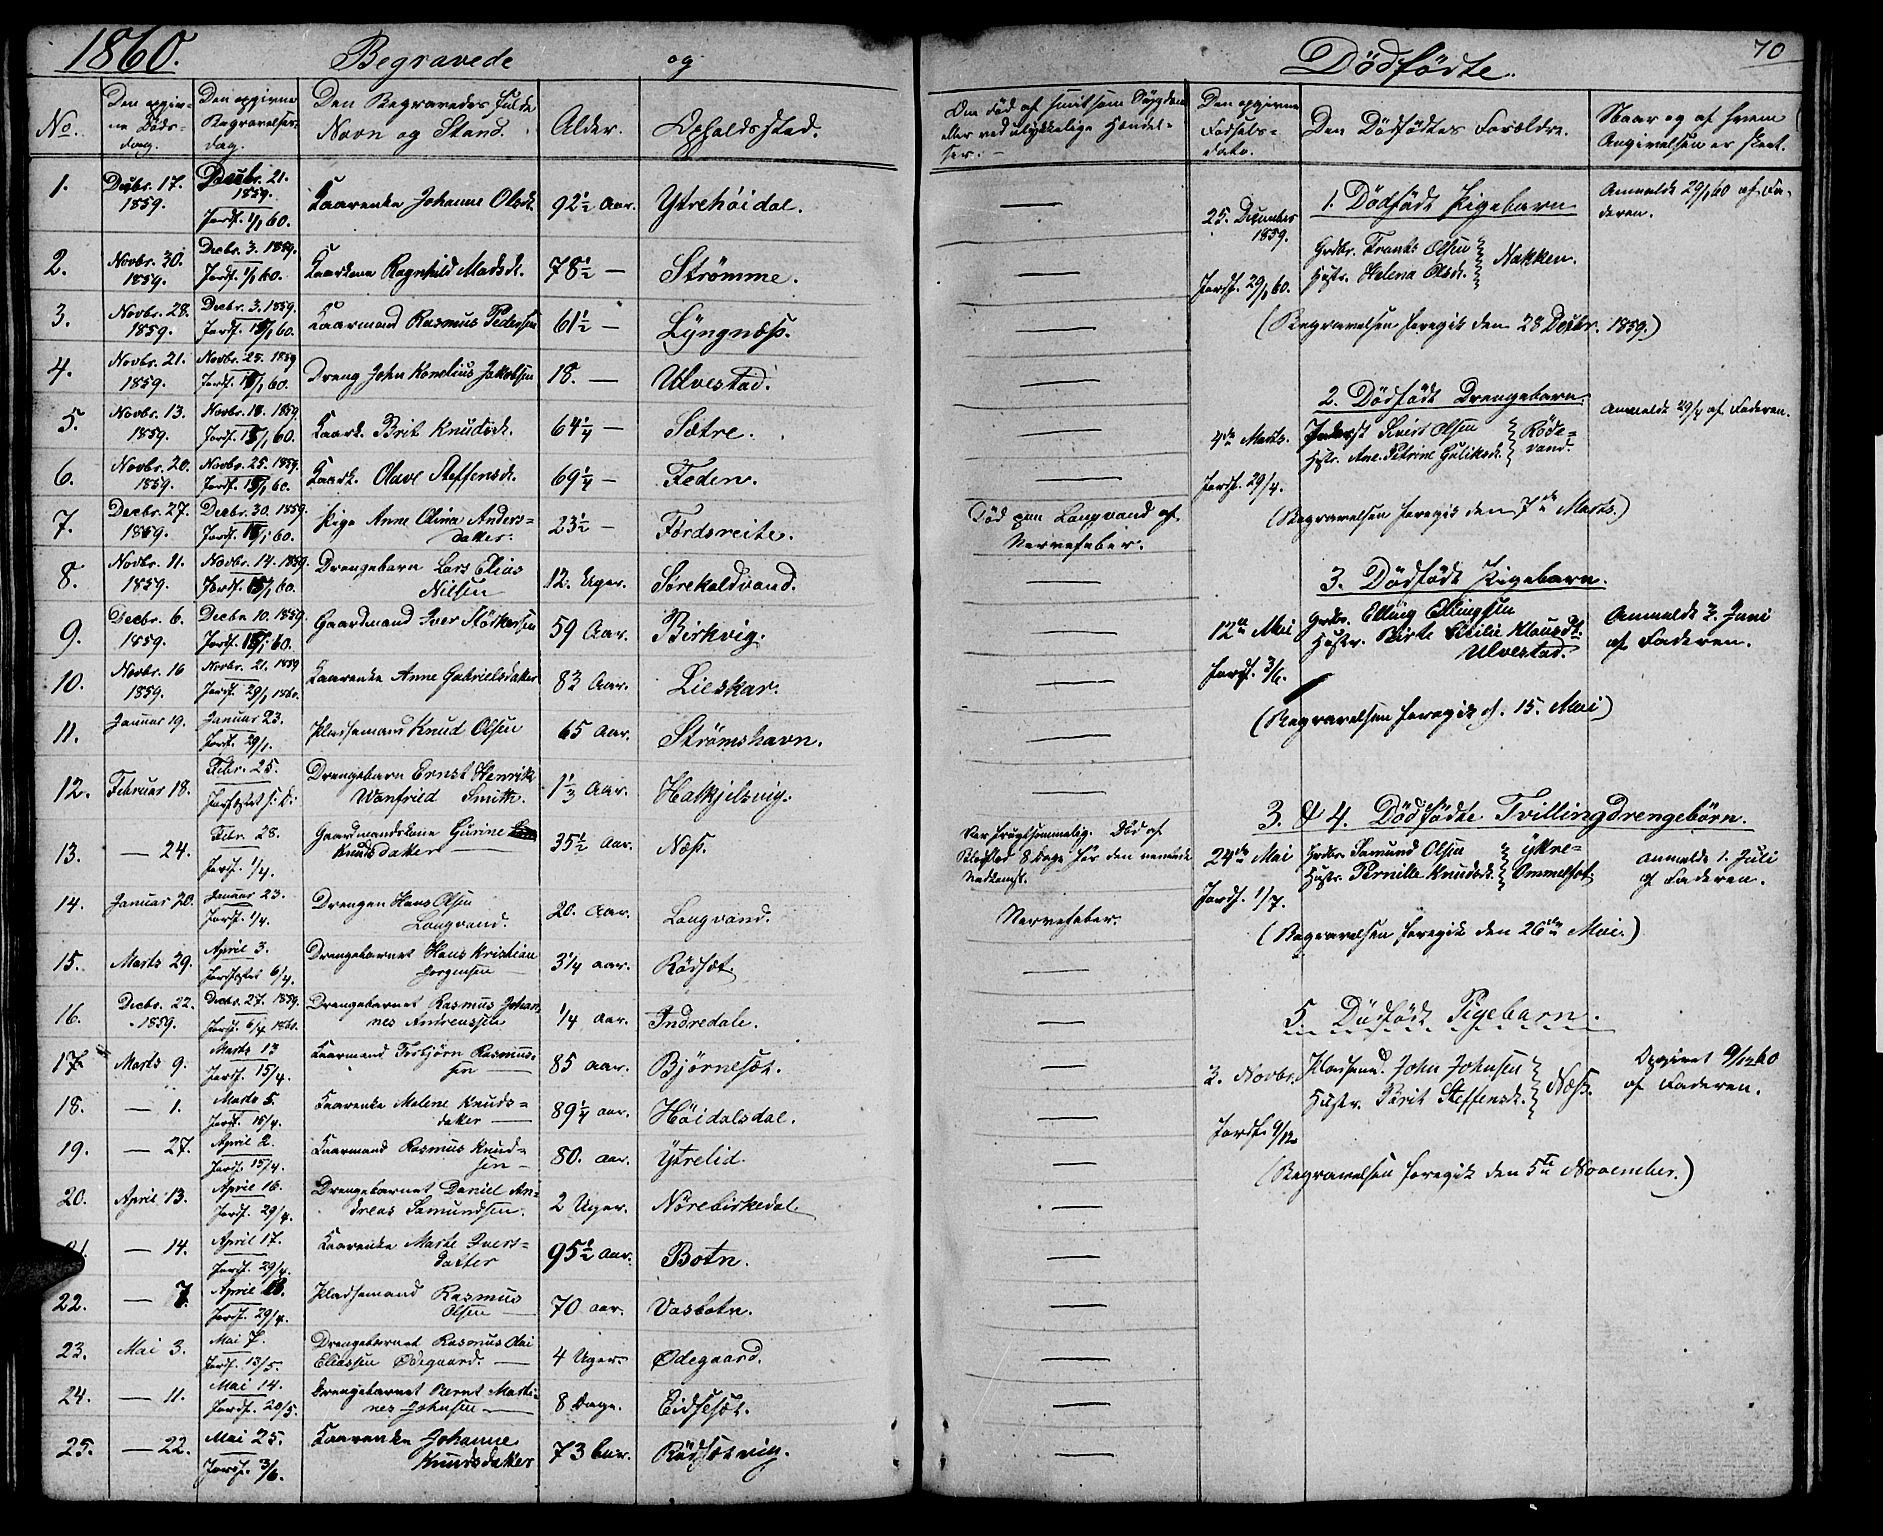 1860. Begravede og Dødfødte. 70
No. Den opgivne Døds-dag. Den opgivne Begravelses-dag. Den Begravedes fulde Navn og Stand. Alder. Opholdssted. Om Død af smitsom Sygdom eller ved ulykkelige Hændelser. Den opgivne Fødsels-dato. Den Dødfødtes Forældre. Naar og af hvem Angivelsen er skeet.
1. Decbr. 17. 1859. Decbr. 21. 1859. Jordf. 1/1 60. Kaarenke Johanne Olsdt. 92 1/2 Aar. Ytrehöidal. —
2. Novbr. 30. 1859. Decbr. 3. 1859. Jordf. 1/1 60. Kaarkone Ragnhild Madsdt. 78 1/2 — Strömme. —
3. Novbr. 28. 1859. Decbr. 3. 1859. Jordf. 15/1 60. Kaarmand Rasmus Pedersen 61 1/2 — Lyngnæss. —
4. Novbr. 21. 1859. Novbr. 25. 1859 Jordf. 15/1 60. Dreng John Kornelius Jakobsen 18. — Ulvestad. —
5. Novbr. 13. 1859. Novbr. 18. 1859. Jordf. 15/1 60. Kaark. Brit Knudsdt. 64 1/4 — Sætre. —
6. Novbr. 20. 1859. Novbr. 25. 1859. Jordf. 15/1 60. Kaark. Olave Steffensdt. 69 1/4 — Feden. —
7. Decbr. 27. 1859. Decbr. 30. 1859. Jordf. 15/1 60. Pige Anne Olina Andersdatter. 23 1/2 — Fördsreite. Död paa Langvand af Nervefeber.
8. Novbr. 11. 1859. Novbr. 14. 1859. Jordf. 15/1 60. Drengebarn Lars Elias Nilsen 12. Uger. Sörekaldvand. —
9. Decbr. 6. 1859. Decbr. 10. 1859. Jordf. 15/1 60. Gaardmand Iver Störkersen 59 Aar. Birkvig. —
10. Novbr. 16 1859. Novbr. 21. 1859 Jordf. 29/1 1860. Kaarenke Anne Gabrielsdatter 83 Aar. Lieskar. —
11. Januar 19. Januar 23. Jordf. 29/1. Pladsemand Knud Olsen 65 Aar. Strömshavn. —
12. Februar 18. Febr. 25. Jordfæstet s. D. Drengebarn Ernst Henrik Wanfried Smith. 1 1/3 Aar. Halkjelsvig. —
13. — 24. Febr. 28. Jordf. 1/4. Gaardmandskone Gurine Knudsdatter 35 1/2 Aar. Næss. Var frugtsommelig. Död af Blodflod 8 Dage før den ventende Nedkomst.
14. Januar 20. Januar 23. Jordf. 1/4. Drengen Hans Olsen Langvand. 20. Aar. Langvand. Nervefeber.
15. Marts 29. April 3. Jordfæstet 6/4. Drengebarnet Hans Kristian Jørgensen 3 1/4 Aar. Rödsæt. —
16. Decbr. 22. 1859. Decbr. 27. 1859. Jordf. 6/4 1860. Drengebarnet Rasmus Johannes Andreassen 1/4 Aar. Indredale. —
17. Marts 9. Marts 13 Jordf. 15/4. Kaarmand Torbjörn Rasmussen 85 Aar. Björnesæt. —
18. — 1. Marts 5. Jordf. 15/4. Kaarenke Malene Knudsdatter 89 1/4 Aar. Höidalsdal. —
19. — 27. April 2. Jordf. 15/4. Kaarmand Rasmus Knudsen 80. Aar. Ytrelid. —
20. April 13. April 16. Jordf. 29/4. Drengebarnet Daniel Andreas Samundsen. 2 Uger. Nörebirkedal. —
21. — 14. April 17. Jordf. 29/4. Kaarenke Marthe Iversdatter 95 1/2 Aar. Botn. —
22. — 7. April Jordf. 29/4. Pladsemand Rasmus Olsen 70 Aar. Vasbotn. —
23. Mai 3. Mai 7. Jordf. 13/5. Drengebarnet Rasmus Olai Eliassen Ødegaard. 4 Uger. Ødegaard. —
24. — 11. Mai 14. Jordf. 20/5. Drengebarnet Bernt Martines Johnsen 8 Dage. Eidsesæt. —
25. — 22. Mai 25. Jordf. 3/6. Kaarenke Johanne Knudsdatter 73 Aar. Rödsætvig. —
1. Dödfödt Pigebarn
25. December 1859. Jordf. 29/1 60. Grdbr. Frants Olsen Hustr. Helena Olsdt. Nakken. Anmeldt 29/1 60 af Faderen.
(Begravelsen foregik den 28 Decbr. 1859.)
2. Dödfödt Drengebarn.
4de Marts. Jordf. 29/4. Inderst Sivert Olsen Hustr. Ane Petrine Guliksdt. Rödevand. Anmeldt 29/4 af Faderen.
(Begravelsen foregik den 7de Marts.)
3. Dödfödt Pigebarn.
12te Mai Jordf. 3/6. Grdbr. Elling Ellingsen Hustr. Birte Cecilie Klausdt. Ulvestad. Anmeldt 3. Juni af Faderen.
(Begravelsen foregik d. 15. Mai)
3. & 4. Dödfödte Tvillingdrengebörn.
24de Mai Jordf. 1/7. Grdbr. Samund Olsen Hustr. Pernille Knudsdt. Yttre-Ommelsæt. Anmeldt 1. Juli af Faderen.
(Begravelsen foregik den 26de Mai.)
5. Dödfödt Pigebarn.
2. Novbr. Jordf. 9/12. Pladsemd. John Johnsen Hustr. Berit Steffensdt. Næss. Opgivet 9/12 60 af Faderen.
(Begravelsen foregik den 5te November.)